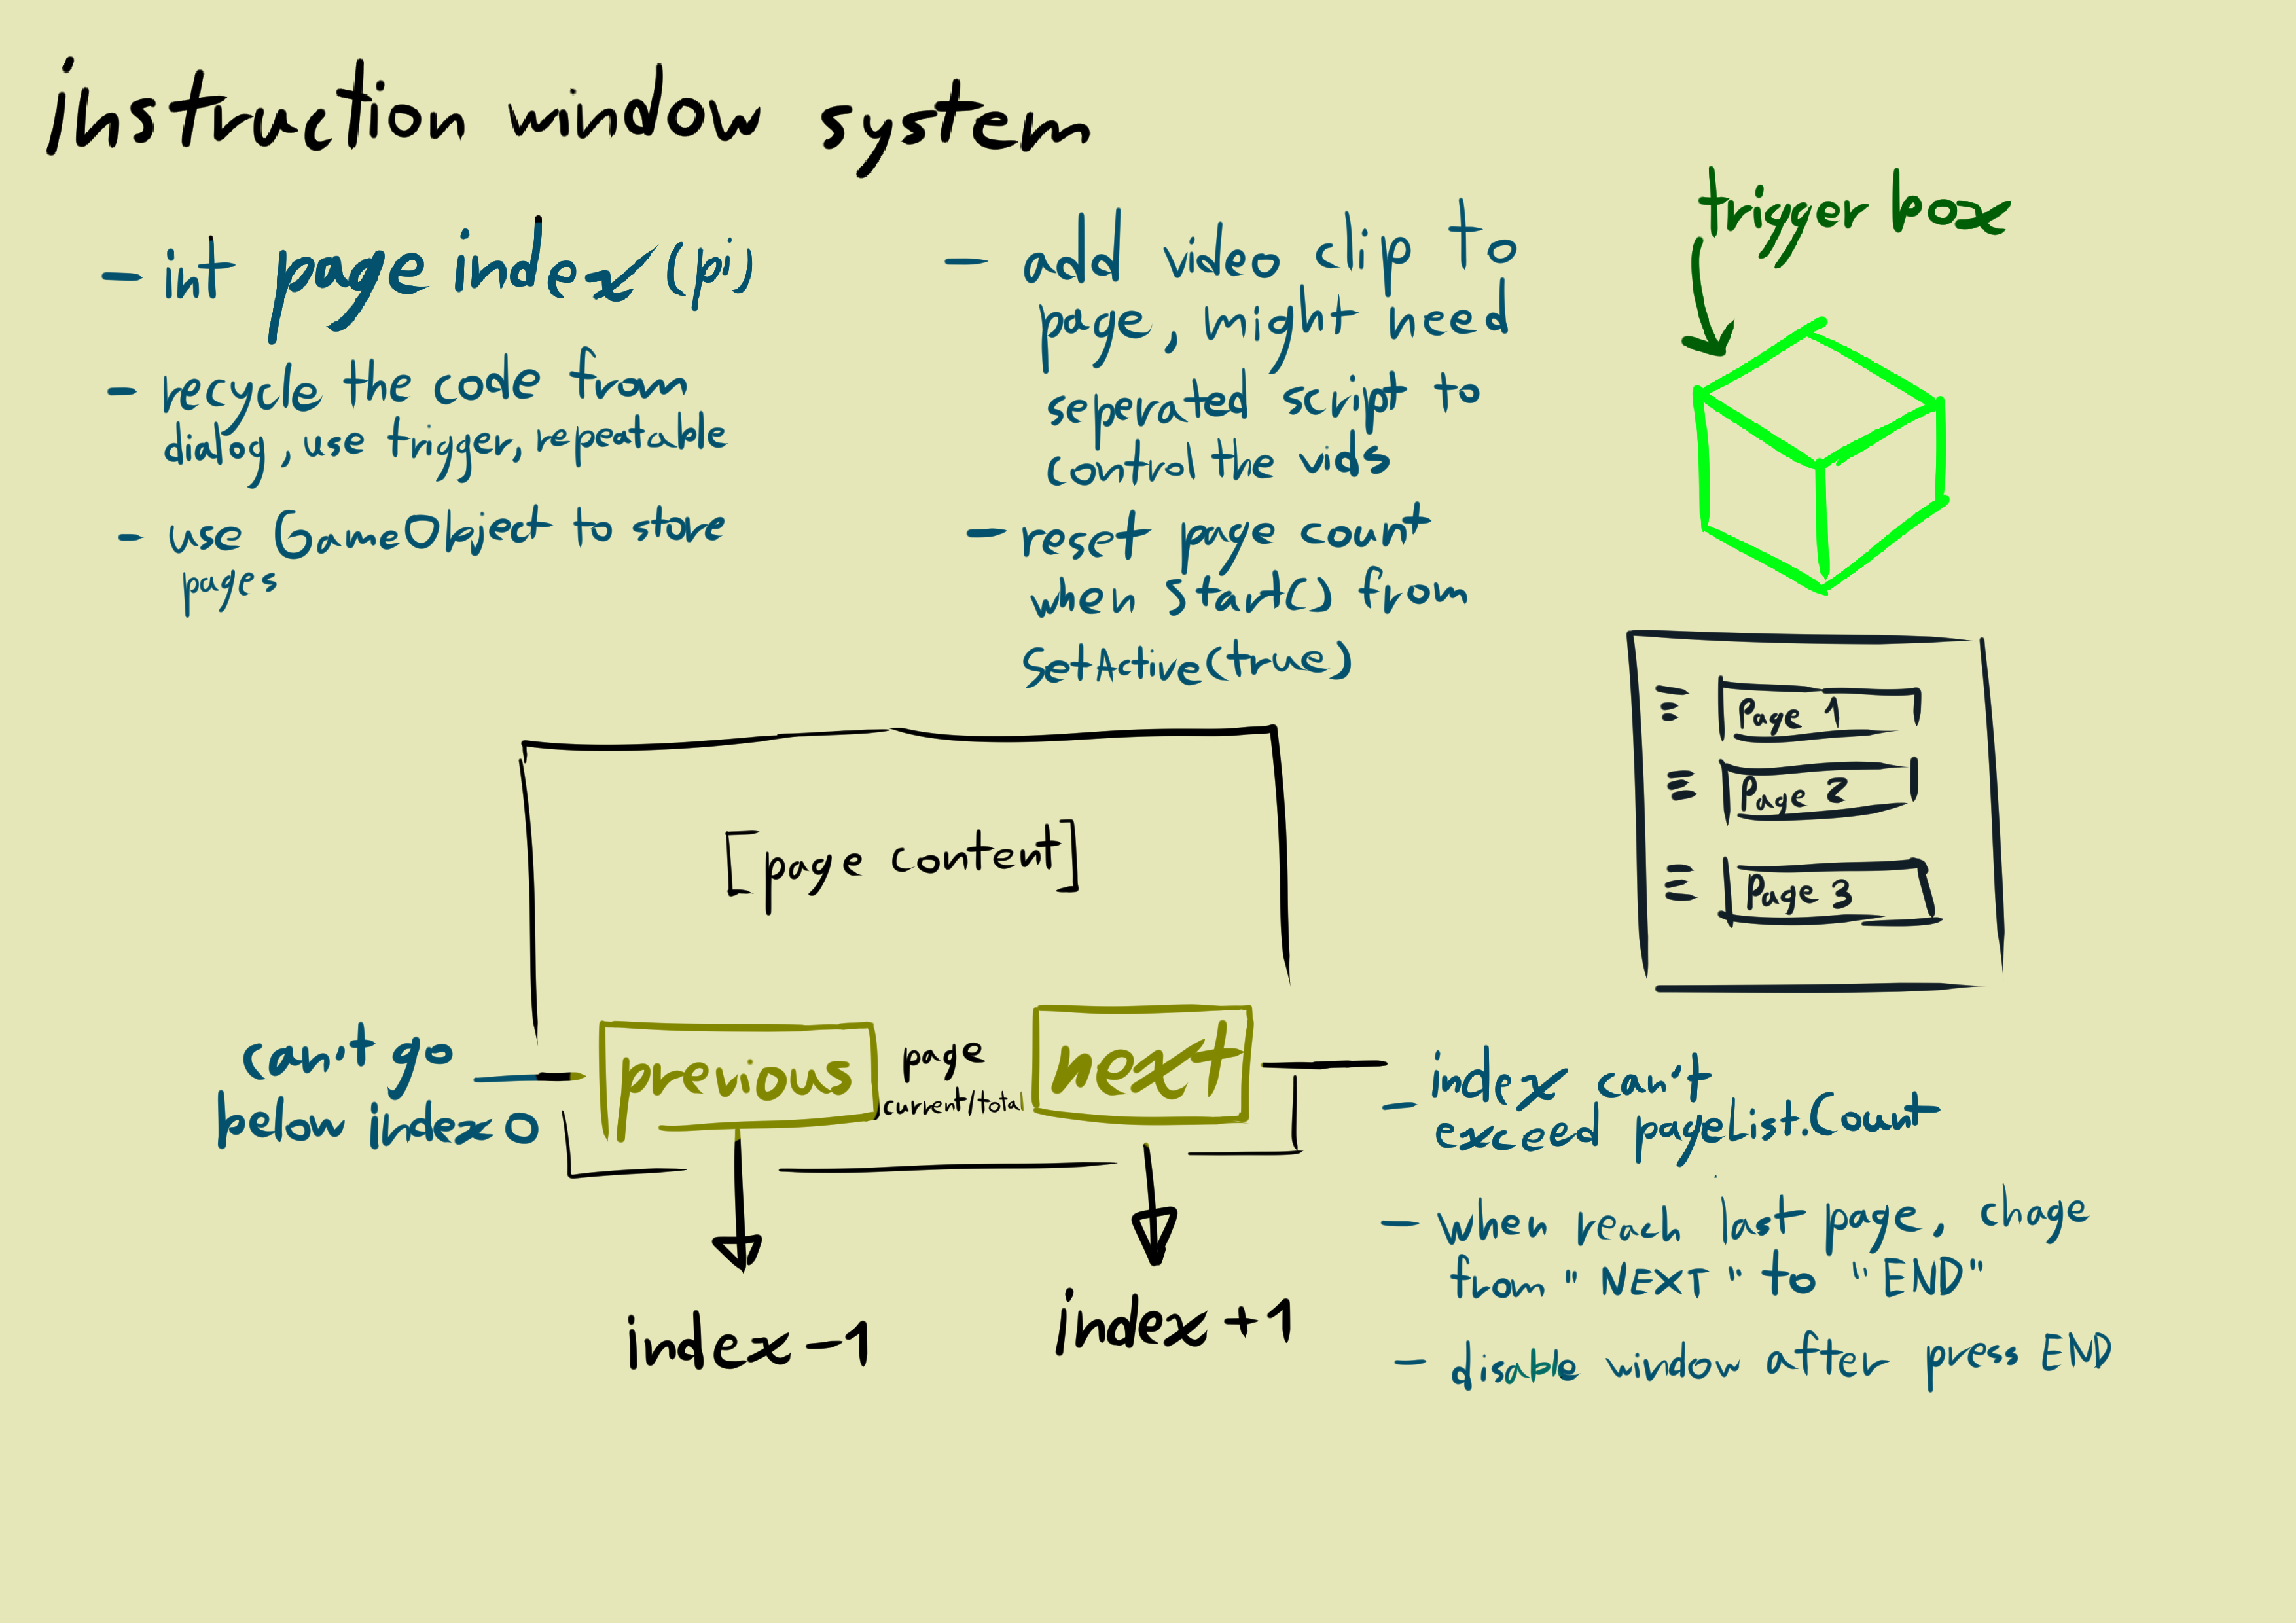 instruction window system
- int page index (pi)
- recycle the code from
dialog, use trigger, repeatable
- use GameObject to store
pages
- add video clip to
page, might need
seperated script to
control the vids
- reset page count
when Start() from
SetActive(true)
trigger box
Page 1
Page 2
Page 3
[page content]
can't go
below index 0
previous
page
current/total
next
index -1
index +1
- index can't
exceed pageList.Count
- when reach last page, chage
from "NEXT" to "END"
- disable window after press END